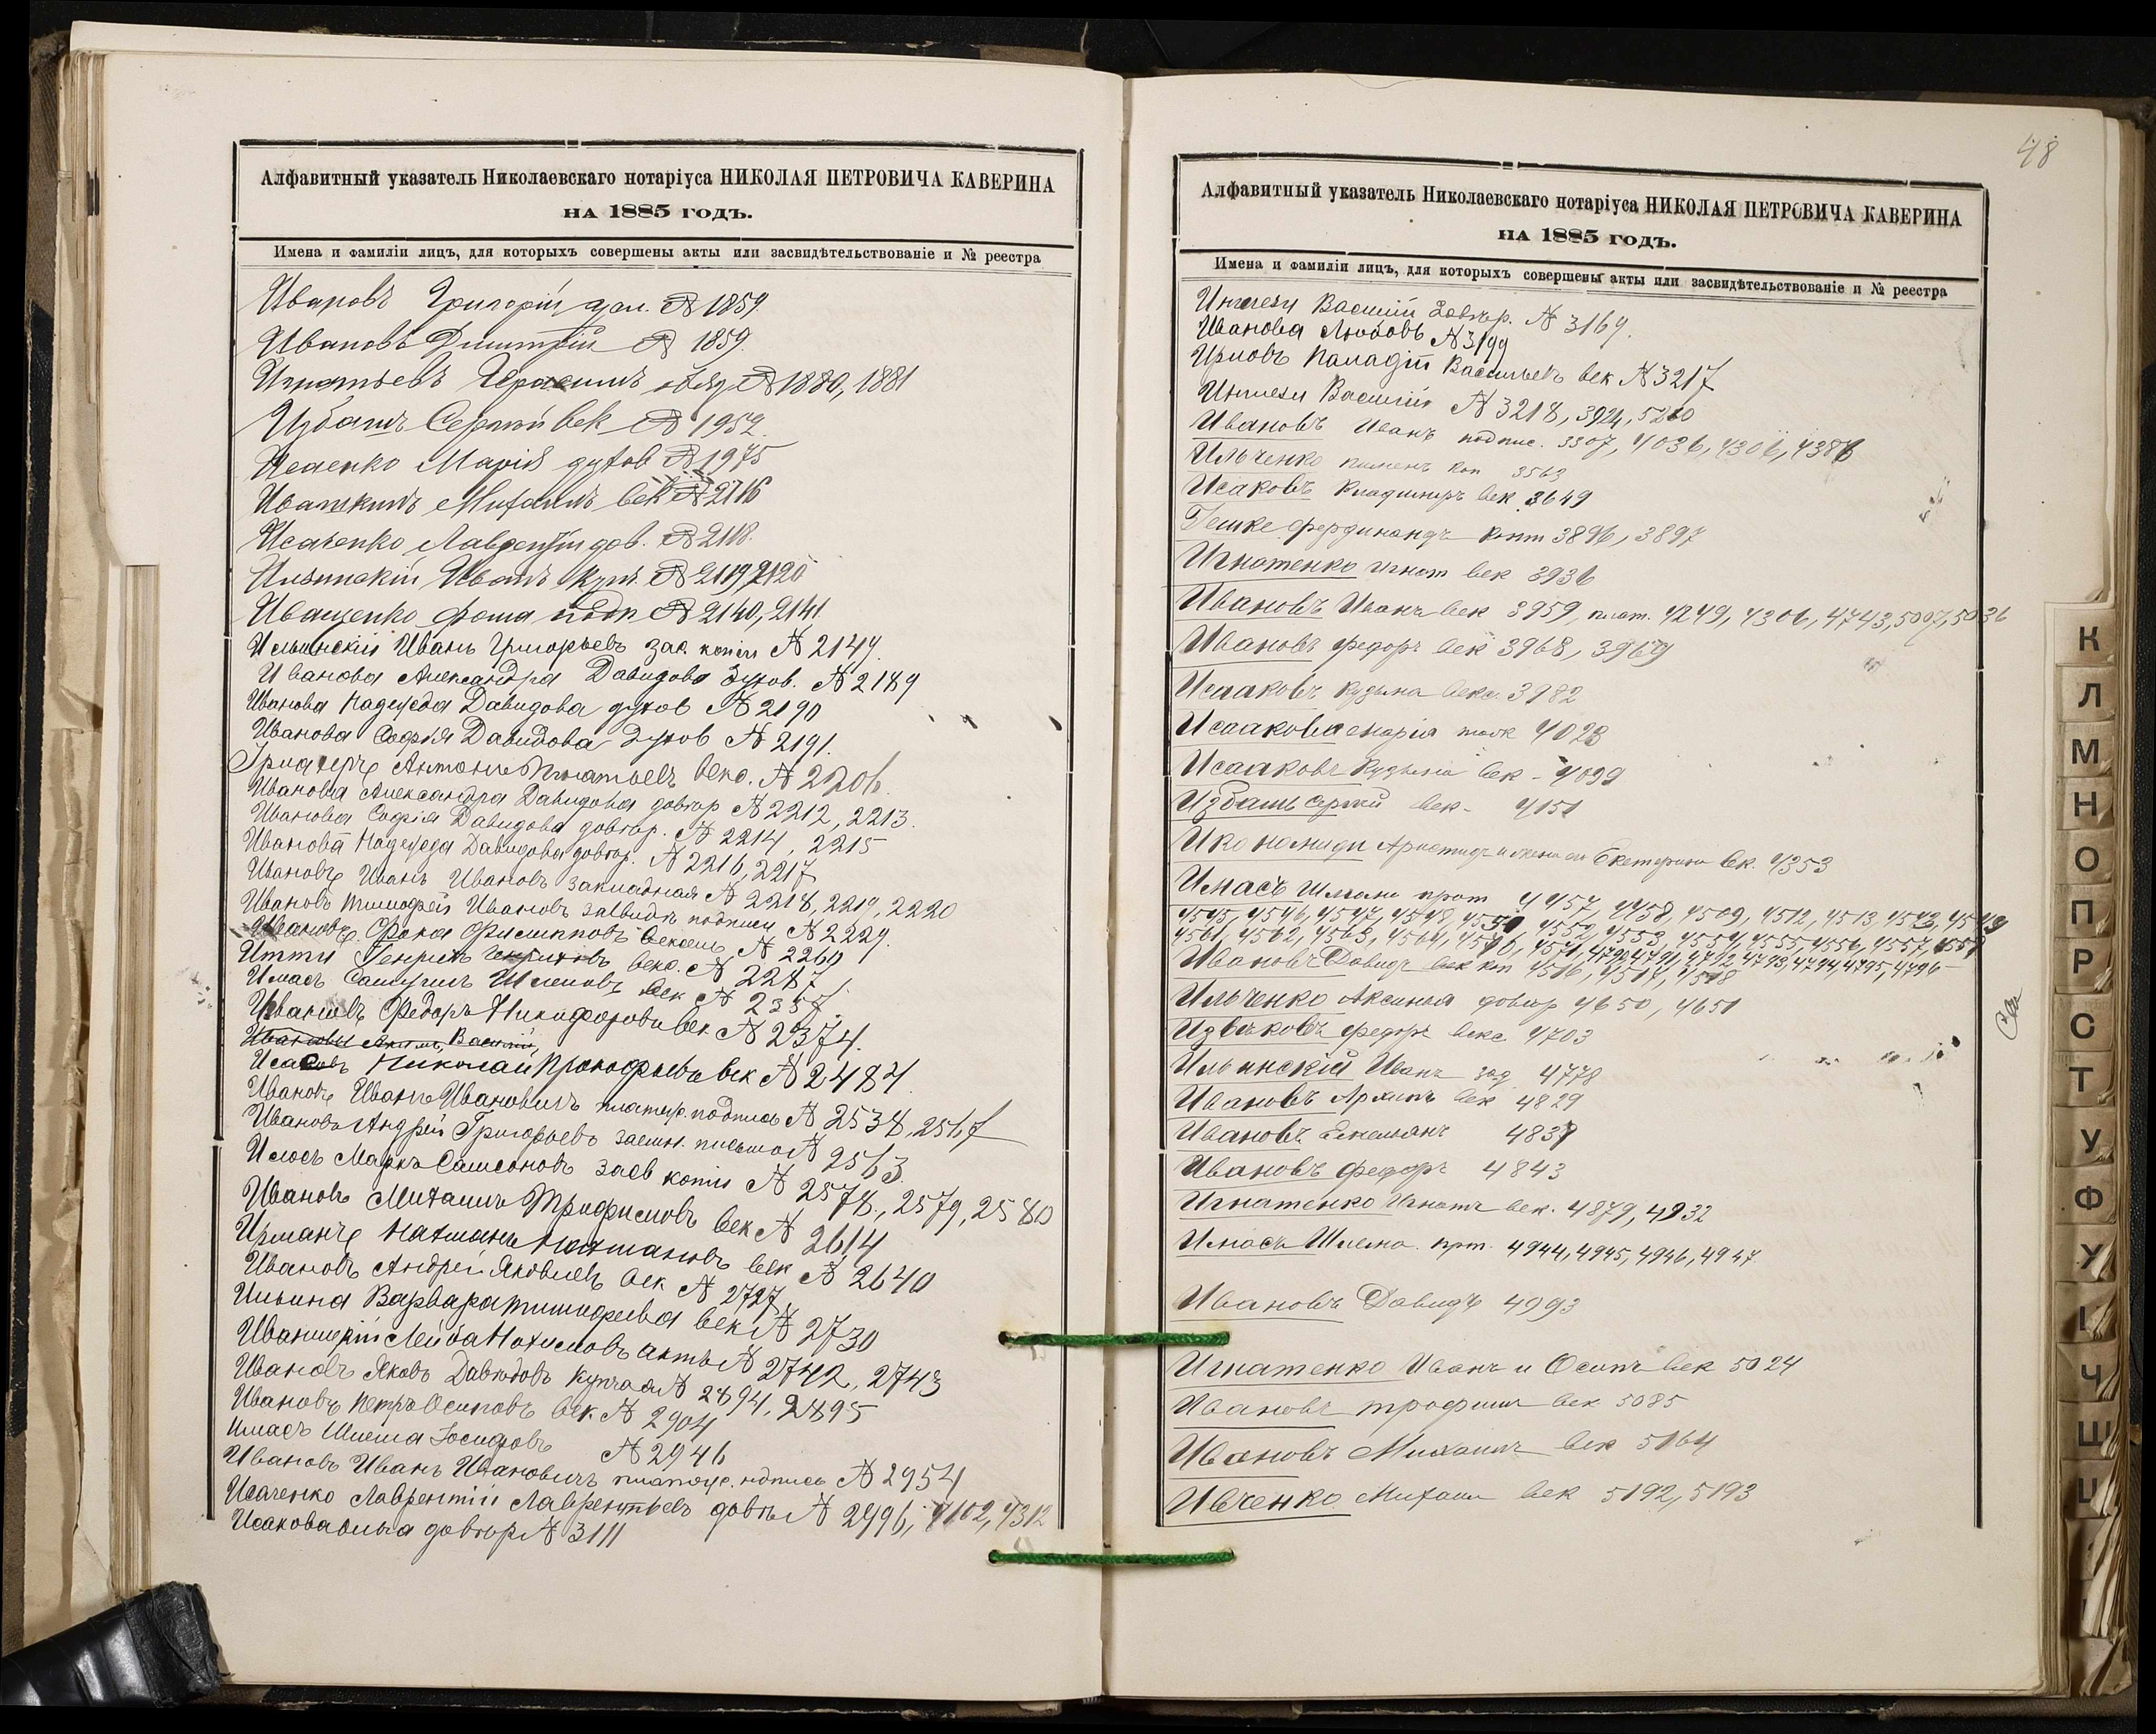 Алфавитный указатель Николаевскаго нотаріуса НИКОЛАЯ ПЕТРОВИЧА КАВЕРИНА
НА 1885 ГОДЪ.
Имена и фамиліи лицъ, для которыхъ совершены акты или засвидѣтельствованіе и № реестра
Ивановъ Григорій № 1859.
Ивановъ Димитрій № 1859.
Игнатьевъ Герасимъ № 1880, 1881
Избашъ Сергѣй век № 1952.
Исаенко Марія духов № 1975
Ивашкинъ Михаилъ век № 2716
Исаченко Лаврентій дов. № 2118.
Ильинскій Иванъ куп. № 2119, 2120
Иващенко Фома подп № 2140, 2141
Ильинскій Иванъ Григорьевъ зас. копіи № 2149.
Иванова Александра Давидова духов. № 2189
Иванова Надежда Давидова духов № 2190
Иванова Софія Давидова духов № 2191.
Антонъ Игнатьевъ векс. № 2206.
Иванова Александра Давидова довѣр № 2212, 2213.
Иванова Софія Давидова довѣр. № 2214, 2215
Иванова Надежда Давидова довѣр. № 2216, 2217
Ивановъ Иванъ Ивановъ закладная № 2218, 2219, 2220
Ивановъ Тимофей Ивановъ засвидѣ подписи № 2229.
Ивановъ Фока Филипповъ вексель № 2260
Итти Генрихъ Генриховъ векс. № 2287.
Имасъ Самуилъ Шлемовъ век № 2357.
Ивановъ Федоръ Никифоровъ век № 2374.
Ивановы Василій,
Исаковъ Николай Прокофьевъ век № 2484.
Ивановъ Иванъ Ивановичъ платеж. подпись № 2538, 2567
Ивановъ Андрей Григорьевъ заемн. письмо № 2563.
Марко Самсоновъ засв копіи № 2578, 2579, 2580
Ивановъ Михаилъ Трифиловъ век № 2614
Ирманъ Нахманъ Нахмановъ век № 2640
Ивановъ Андрей Яковлевъ век № 2727
Ильина Варвара Тимофеева век № 2730
Лейба Нохимовъ актъ № 2742, 2743
Ивановъ Яковъ Давидовъ купчая № 2894, 2895
Ивановъ Петръ Осиповъ век. № 2904
Имасъ Шлема Іосифовъ № 2946
Ивановъ Иванъ Ивановичъ платеж. № 2954
Исаченко Лаврентій Лаврентьевъ довѣ № 2996, 4102, 4312
Исакова довѣр № 3111
48
Алфавитный указатель Николаевскаго нотаріуса НИКОЛАЯ ПЕТРОВИЧА КАВЕРИНА
НА 1885 ГОДЪ.
Имена и фамиліи лицъ, для которыхъ совершены акты или засвидѣтельствованіе и № реестра
Инглези Василій довѣр. № 3169.
Иванова Любовь № 3199
Паладій Васильевъ век № 3217
Инглези Василій № 3218, 3924, 5210
Ивановъ Иванъ подпис. 3307, 4036, 4306, 4386
Ильченко Пименъ коп 3563
Исаковъ Владимиръ век 3649
Гешке Фердинандъ конт 3896, 3897
Игнатенко Игнат век 3936
Ивановъ Иванъ век 3959, плат. 4249, 4306, 4743, 5007, 5036
Ивановъ Федоръ век 3968, 3969
Исааковъ Кузьма векс. 3982
Исаакова Марія 4023
Исааковъ Кузьма век - 4099
Избашъ Сергѣй век - 4151
Икономиди Аристидъ и жена его Екатерина Век. 4353
Имасъ Шлема прот 4457, 4458, 4509, 4512, 4513, 4543,
4545, 4546, 4547, 4548, 4551, 4552, 4553, 4554, 4555, 4556, 4557, 4559
4561, 4562, 4563, 4564, 4570, 4571, 4790, 4791, 4792, 4793, 4794, 4795, 4796 -
Ивановъ Давидъ век коп 4516, 4517, 4518
Ильченко Аксинья довѣр 4650, 4651
Извѣковъ Федоръ векс 4703
Ильинскій Иванъ зад 4778
Ивановъ Архипъ век 4829
Ивановъ Емельянъ 4837
Ивановъ Федоръ 4843
Игнатенко Игнатъ век. 4879, 4932
Имасъ Шлема. прт. 4944, 4945, 4946, 4947
Ивановъ Давидъ 4993
Игнатенко Иванъ и Осипъ век 5024
Ивановъ Трофимъ век 5085
Ивановъ Михаилъ век 5164
Ивченко Михаил век 5192, 5193
К
Л
М
Н
О
П
Р
С
Т
У
Ф
Ч
Ш